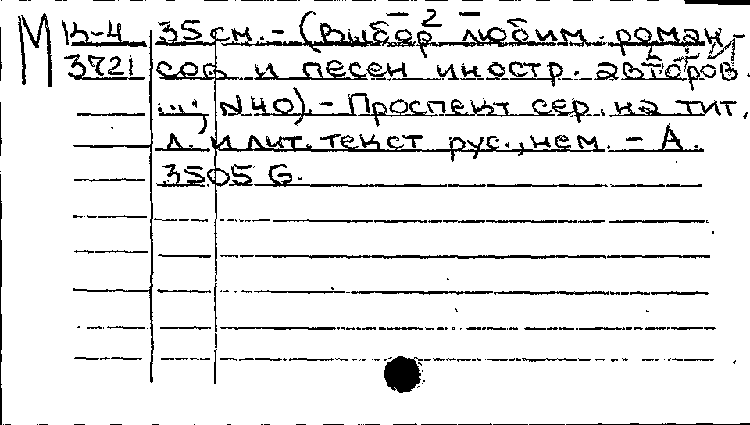 – 2 –
М В-4 35 см. – (Выбор любим. роман-
3721 сов и песен иностр. авторов.
...; N40). – Проспект сер. на тит.
л. и лит. текст рус., нем. – А.
3505 G.